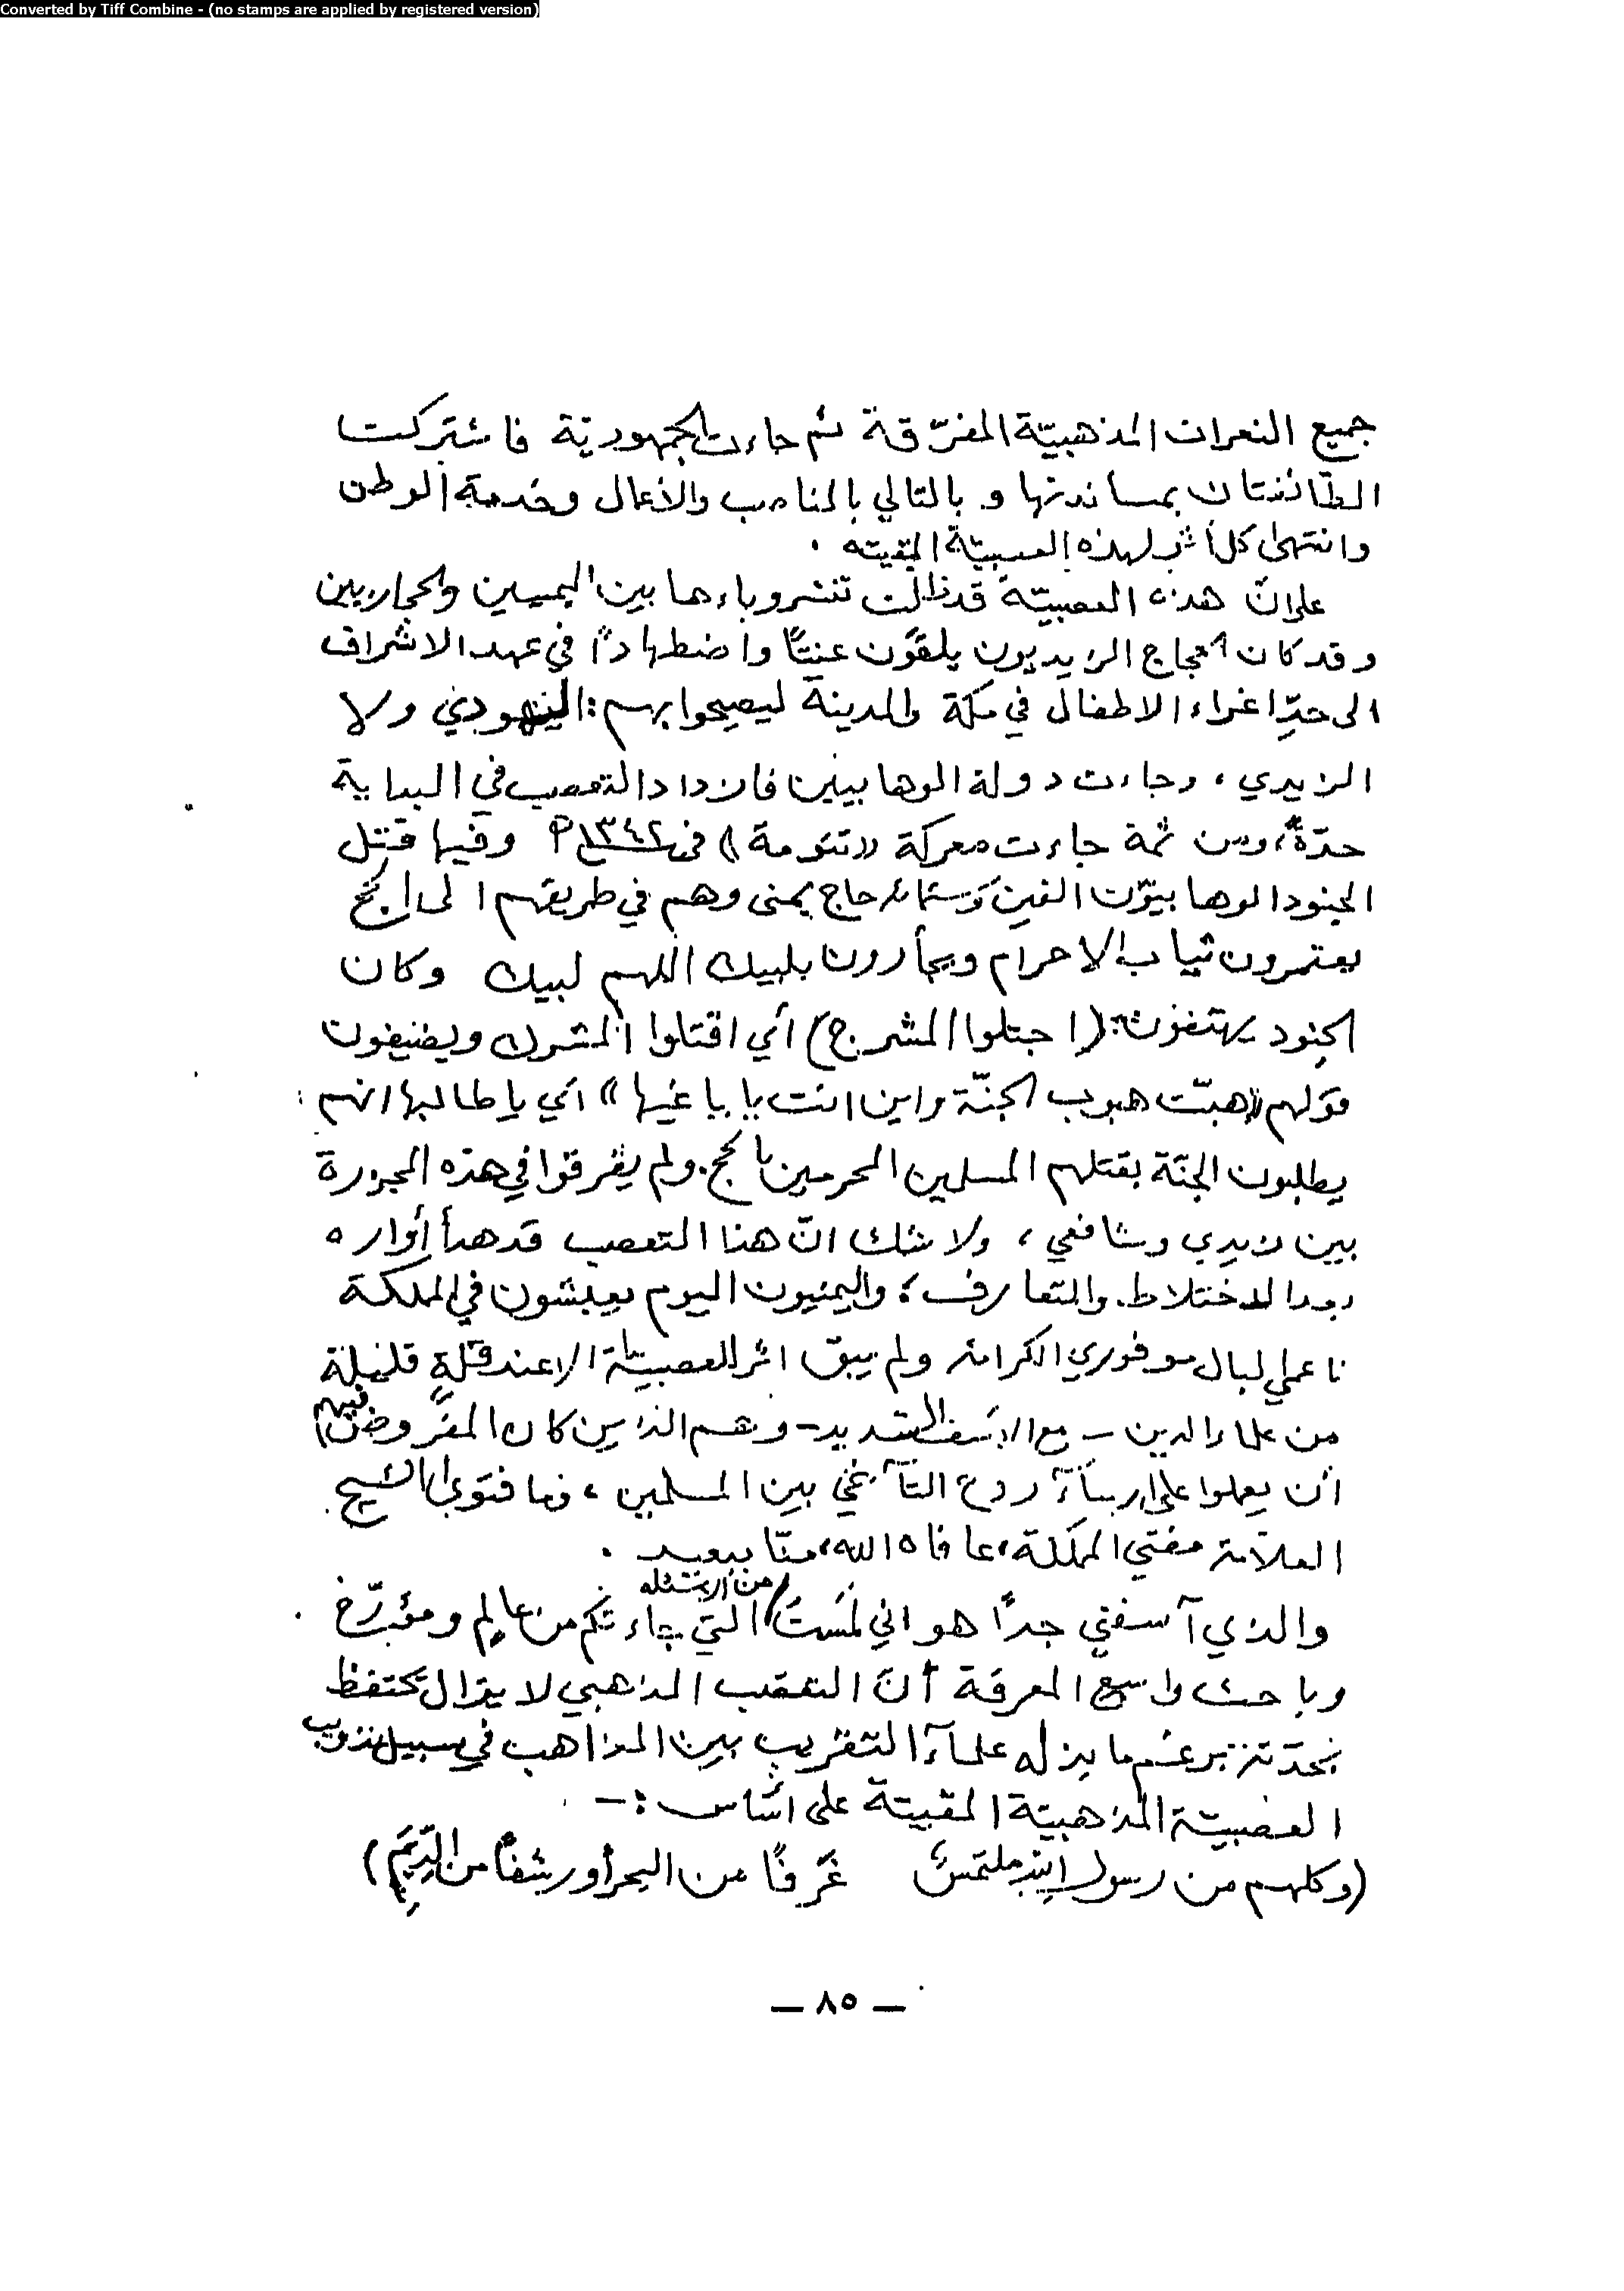 Converted by Tiff Combine - (no stamps are applied by registered version)
جميع النعرات المذهبيّة المفرّقة ثم جاءت الجمهوريّة فاشتركت
الطائفتان بمساندتها و بالتالي بالمناصب والأعمال وخدمة الوطن
وانتهى كل أثر لهذه العصبيّة المقيته .
على انّ هذه العصبيّة قد ظلت تنشر وباءها بين اليمنيين والحجازيين
وقد كان الحجاج الزيديون يلقَون عنتًا واضطهادًا في عهد الاشراف
الى حدِّ اغراء الاطفال في مكة والمدينة ليصيحوا بهم : اليهودي ولا
الزيدي ، وجاءت دولة الوهابيين فازداد التعصب في البداية
حدّةً، ومن ثمة جاءت معركة «تنومة» في ١٣٤٢ وفيها قتل
الجنود الوهابيّون الفين وستمائة حاج يمني وهم في طريقهم الى الحج
يعتمرون ثياب الاحرام ويجأرون بلبيك اللهم لبيك وكان
الجنود يهتفون : (اجتلوا المشرج) أي اقتلوا المشرك ويضيفون
قولهم «هبّت هبوب الجنّة واين انت يا باغيها» أي يا طالبها انهم
يطلبون الجنّة بقتلهم المسلمين المحرمين بالحج. ولم يفرقوا في هذه المجزرة
بين زيدي وشافعي ، ولا شك انّ هذا التعصب قد هدأ أواره
بعد الاختلاط. والتعارف ؛ واليمنيون اليوم يعيشون في المملكة
ناعمي البال موفوري الكرامة ولم يبق اثر للعصبيّة الا عند قلّةٍ قليلة
من علماء الدين – مع الاسف الشديد – وهم الذين كان المفروض فيهم
أن يعملوا على ارساء روح التآخي بين المسلمين ، وما فتوى الشيخ
العلاّمة مفتي المملكة، عافاه الله، منّا ببعيد .
والذي آسفني جدًا هو اني لمَستُ من الأسئله التي جاءتكم من عالِم ومؤرّخ
وباحث واسع المعرفة أنّ التعصب المذهبي لا يزال يحتفظ
بحدّته برغم ما بذله علمآء التقريب بين المذاهب في سبيل تذويب
العصبيّة المذهبيّة المقيتة على أساس :–
(وكلهم من رسول الله ملتمسٌ غَرفًا من البحر أو رشفًا من الدِّيَمِ)
– ٨٥ –